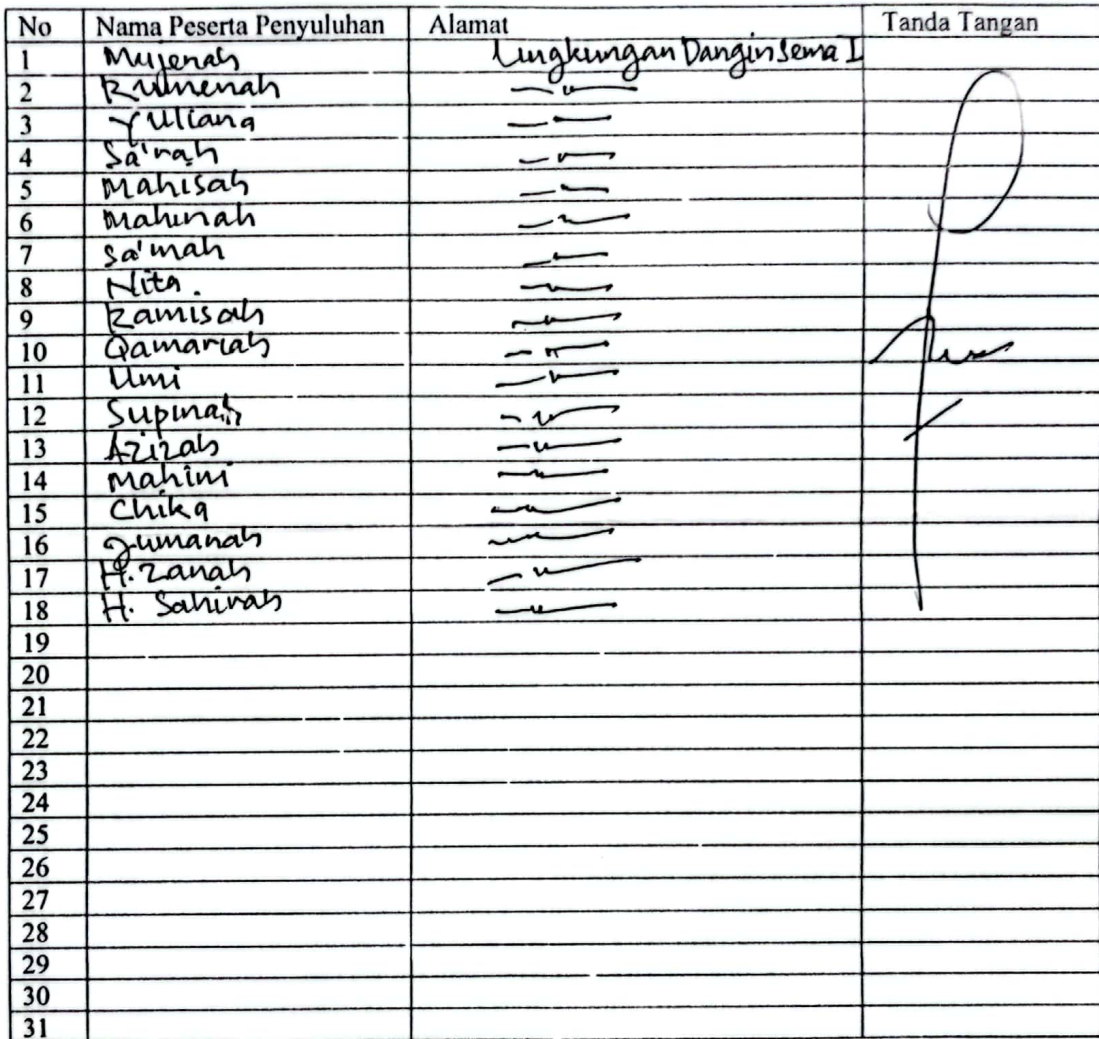 No Nama Peserta Penyuluhan Alamat Tanda Tangan
1 Mujenah Lingkungan Dangin Sema I
2 Rumenah —〃—
3 Yuliana —〃—
4 Sa'rah —〃—
5 Mahisah —〃—
6 Mahinah —〃—
7 Sa'mah —〃—
8 Nita. —〃—
9 Ramisah —〃—
10 Qamariah —〃—
11 Umi —〃—
12 Supinah —〃—
13 Azizah —〃—
14 Mahini —〃—
15 Chika —〃—
16 Jumanah —〃—
17 H. Zanah —〃—
18 H. Sahirah —〃—
19
20
21
22
23
24
25
26
27
28
29
30
31